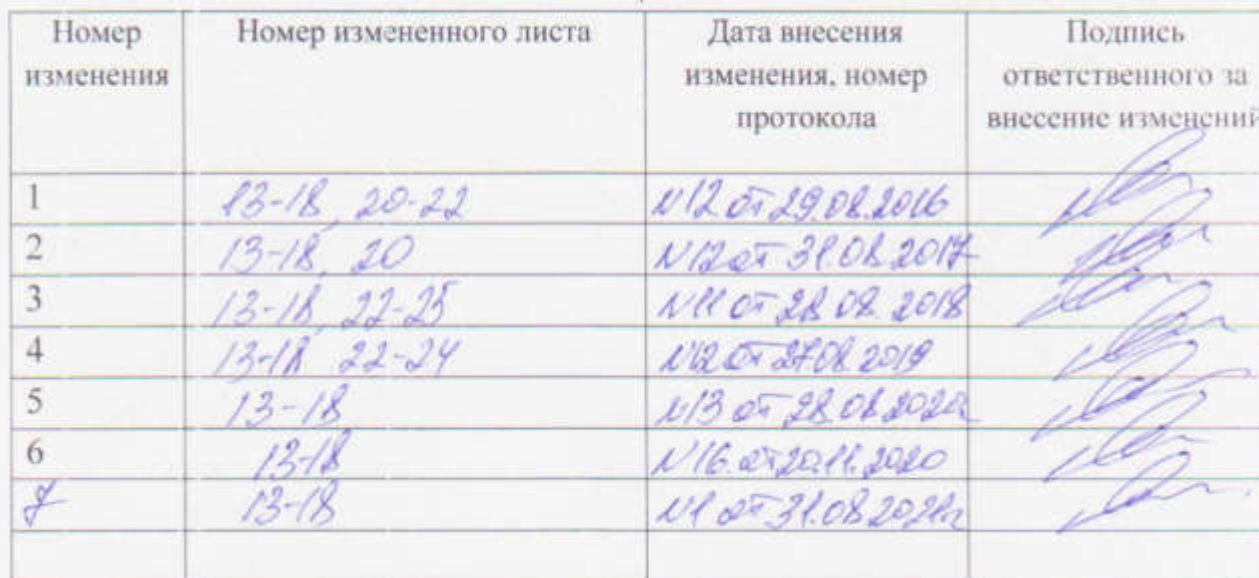 Номер изменения Номер измененного листа Дата внесения изменения, номер протокола Подпись ответственного за внесение изменений
1 13-18, 20-22 №12 от 29.08.2016
2 13-18, 20 №12 от 31.08.2017
3 13-18, 22-25 №11 от 28.08.2018
4 13-18 22-24 №12 от 27.08.2019
5 13-18 №13 от 28.08.2020г
6 13-18 №16. от 20.11.2020
7 13-18 №1 от 31.08.2021г